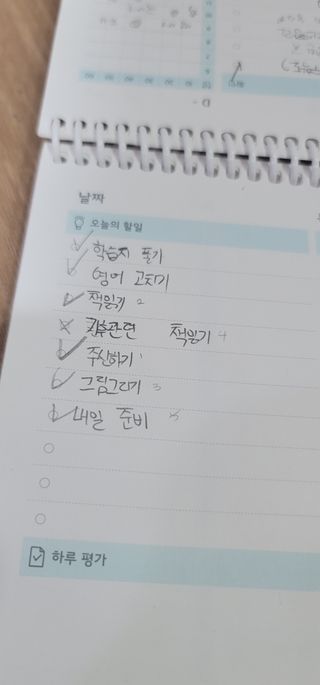 날짜
오늘의 할일
학습지 풀기
영어 고치기
책읽기 2
책읽기 4
주산하기 1
그림그리기 3
내일 준비 5
하루 평가